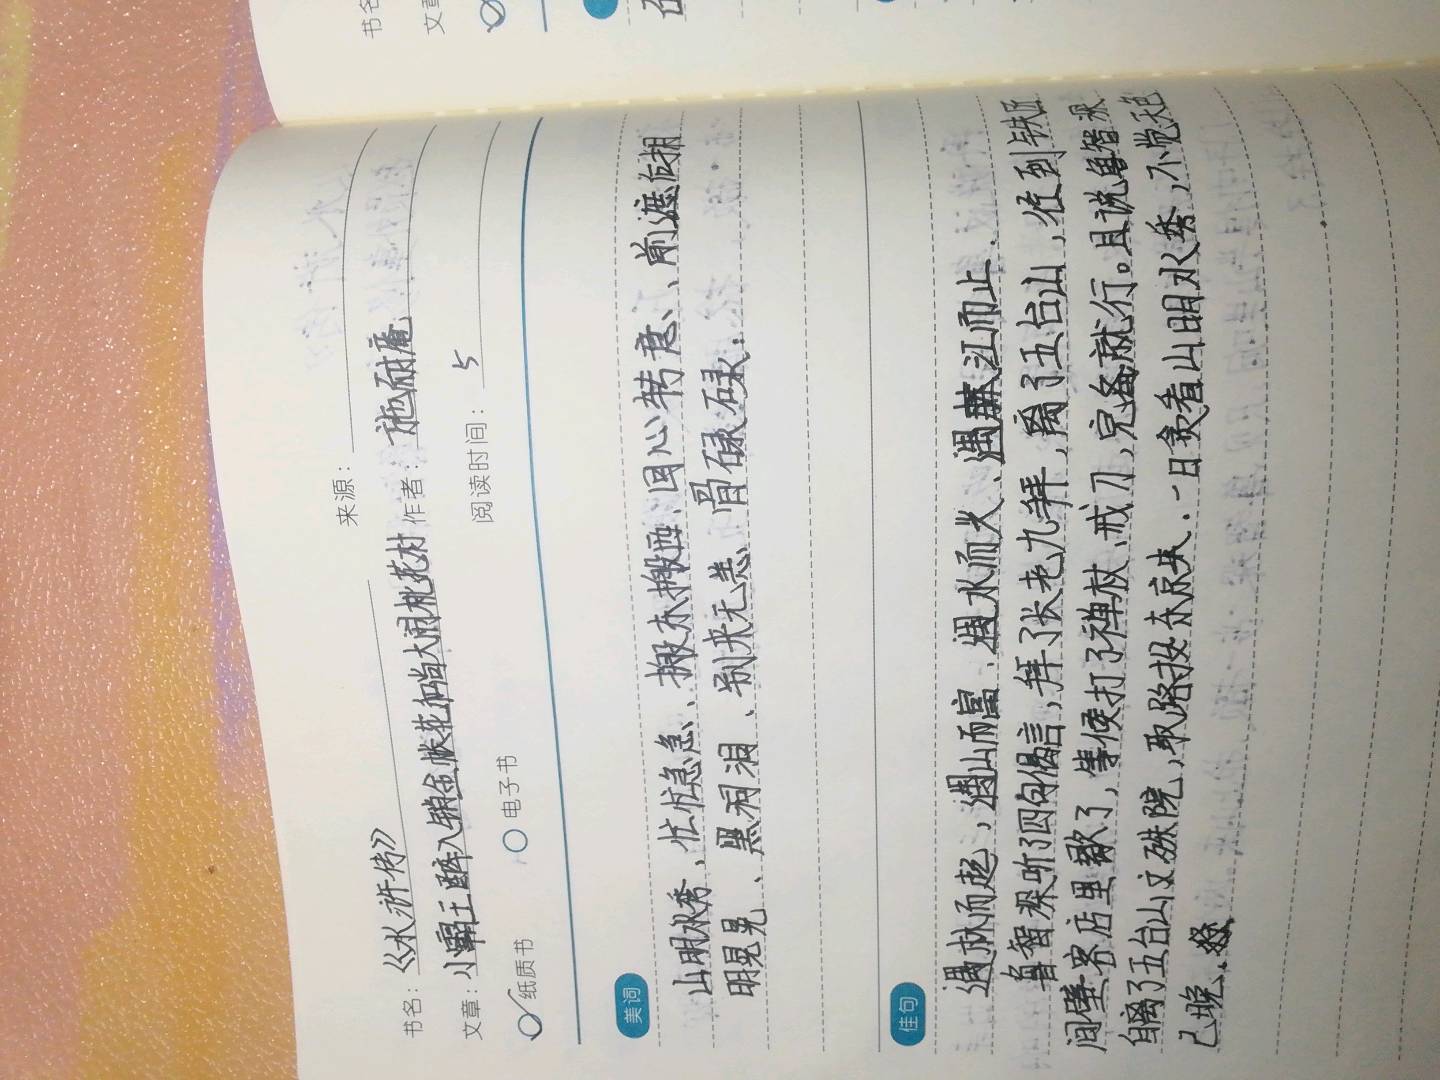 书名：《水浒传》 来源：
文章：小霸王醉入销金帐花和尚大闹桃花村 作者：施耐庵
纸质书 电子书 阅读时间：5
美词
山明水秀、忙忙急急、搬东搬西、回心转意、前遮后拥
明晃晃、黑洞洞、别来无恙、骨碌碌.
佳句
遇林而起，遇山而富、遇水而兴、遇江而止.
鲁智深听了四句偈言，拜了长老九拜，离了五台山，径到铁匠
间壁客店里歇了，等候打了禅杖、戒刀，完备就行。且说鲁智深
自离了五台山文殊院，取路投东京来.一日贪看山明水秀，不觉天色
已晚.
书名
文章